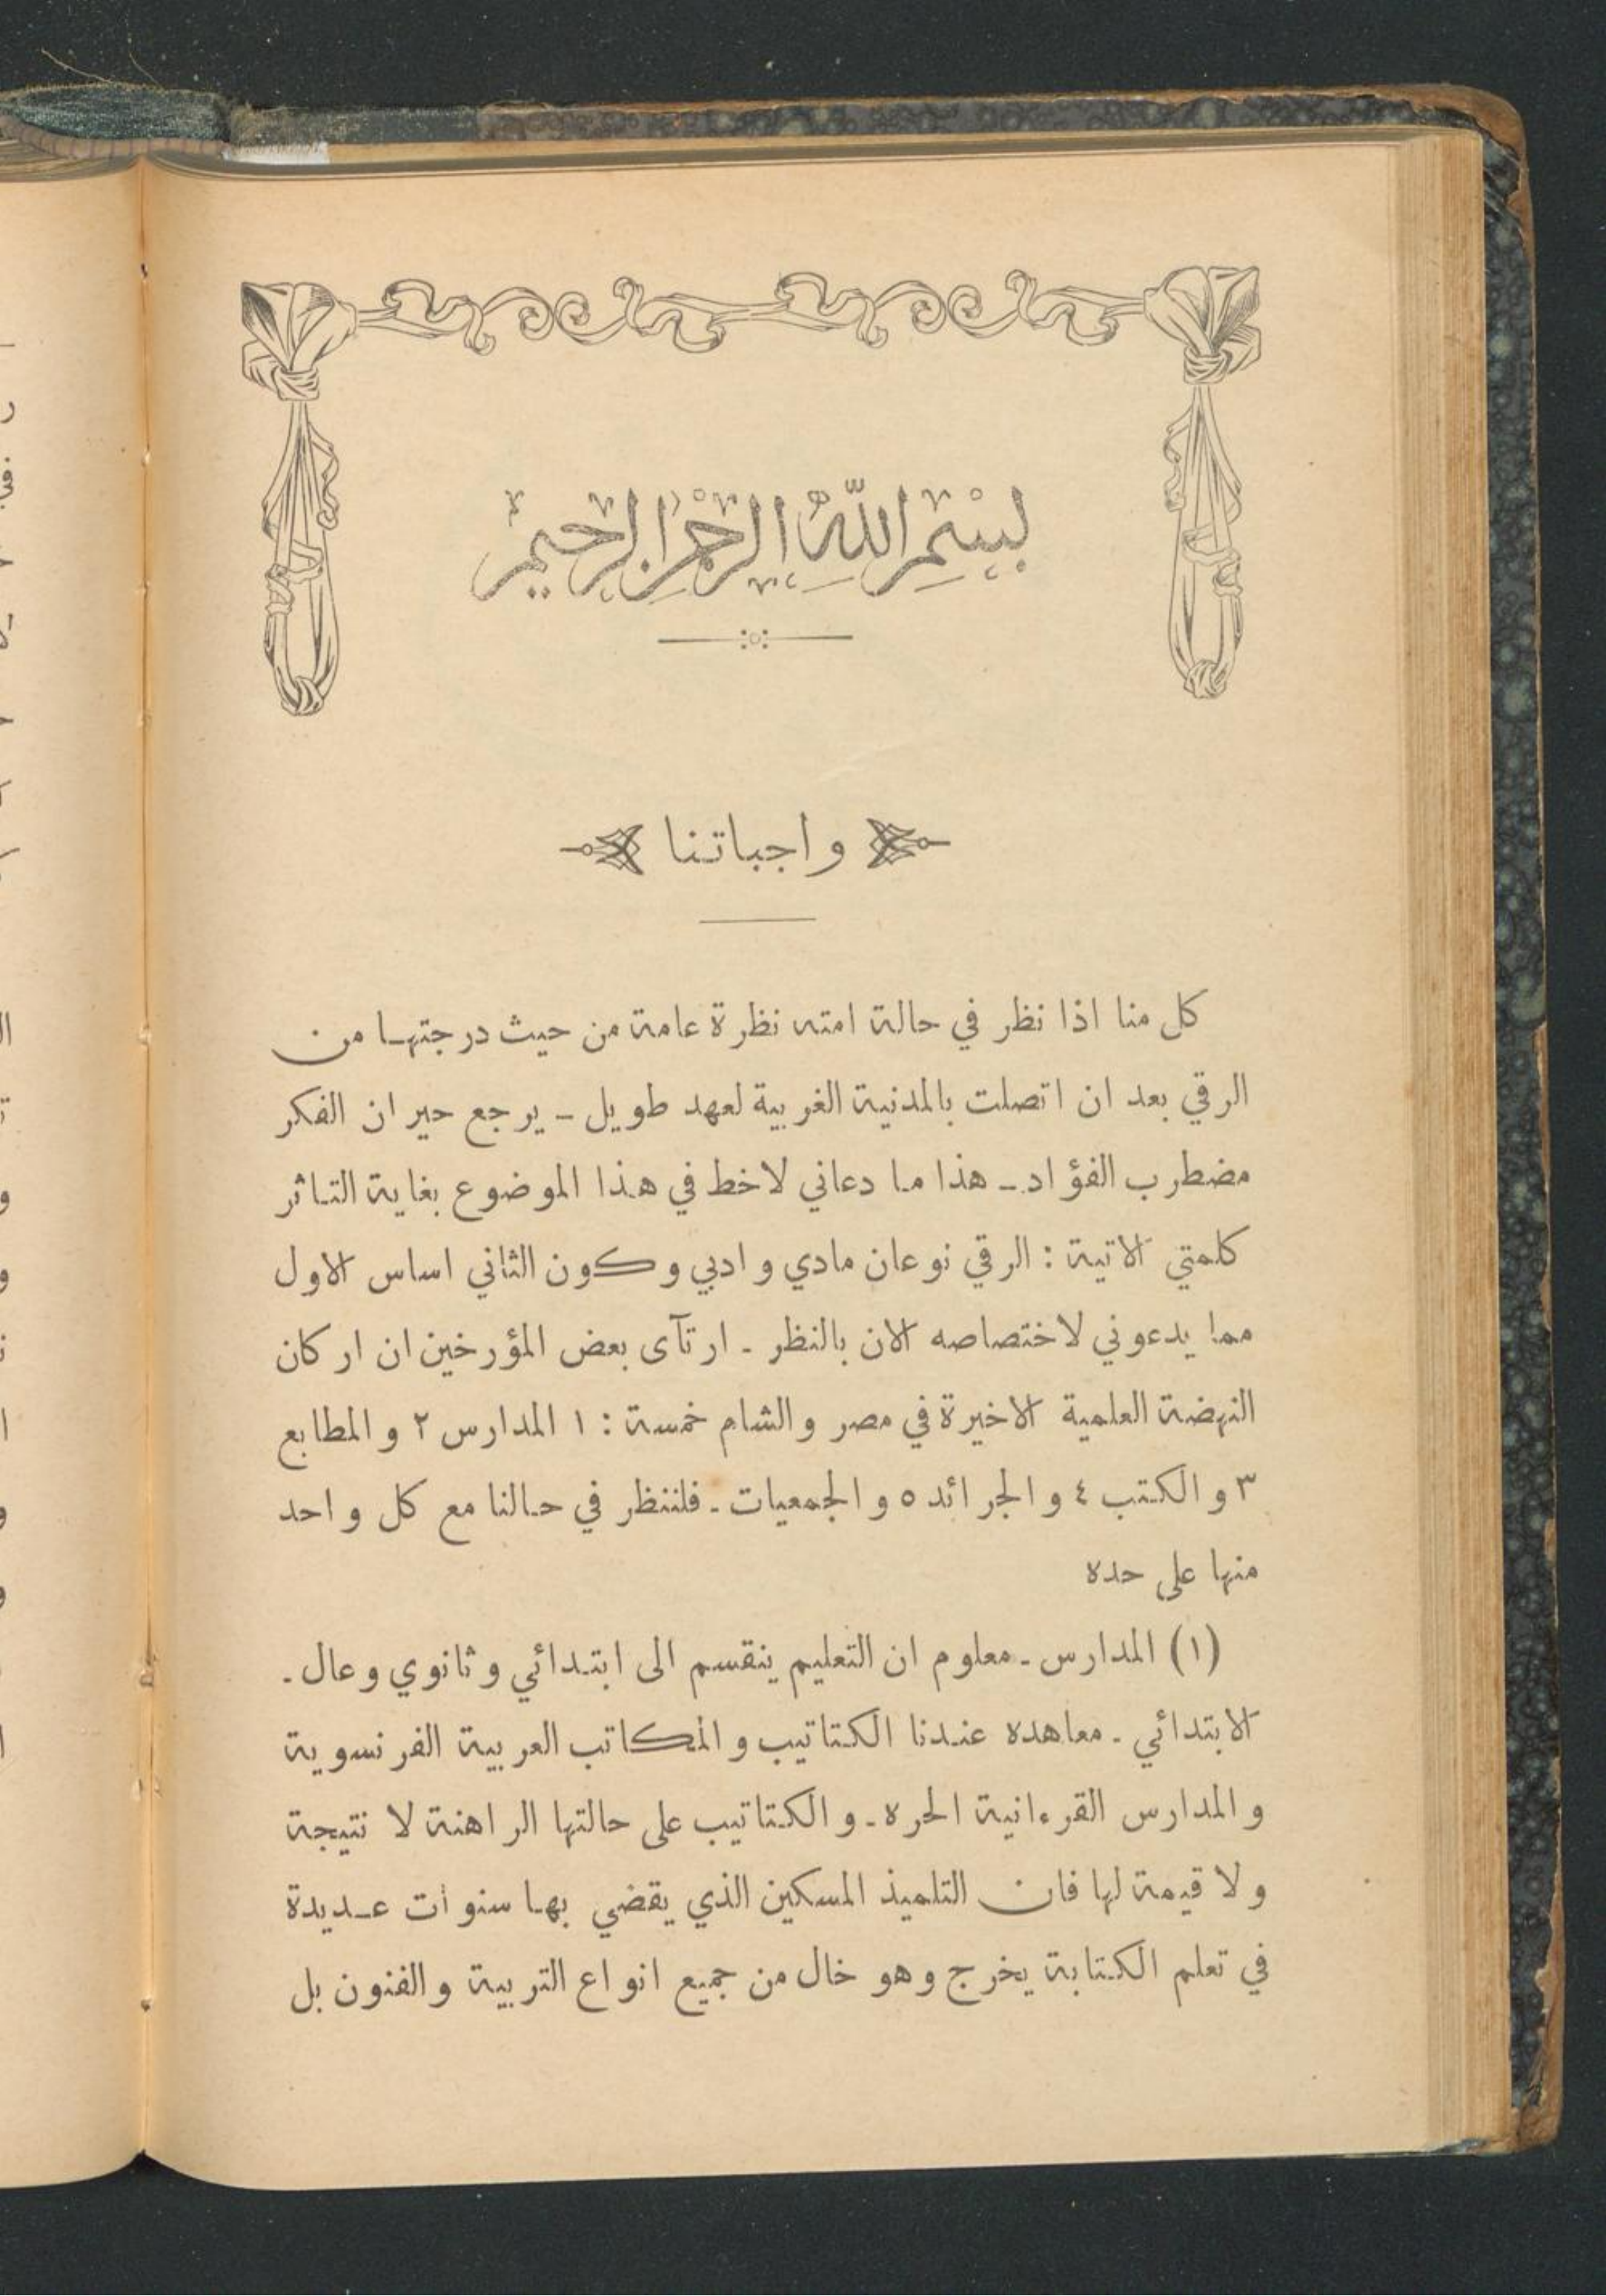 بِسْمِ اللّٰهِ الرَّحْمٰنِ الرَّحِيمِ
واجباتنا
كل منا اذا نظر في حالة امته نظرة عامة من حيث درجتها من
الرقي بعد ان اتصلت بالمدنية الغربية لعهد طويل - يرجع حيران الفكر
مضطرب الفؤاد - هذا ما دعاني لاخط في هذا الموضوع بغاية التاثر
كلمتي الآتية : الرقي نوعان مادي وادبي وكون الثاني اساس الاول
مما يدعوني لاختصاصه الآن بالنظر - ارتآى بعض المؤرخين ان اركان
النهضة العلمية الاخيرة في مصر والشام خمسة : ١ المدارس ٢ والمطابع
٣ والكتب ٤ والجرائد ٥ والجمعيات - فلننظر في حالنا مع كل واحد
منها على حده
(١) المدارس - معلوم ان التعليم ينقسم الى ابتدائي وثانوي وعال -
الابتدائي - معاهده عندنا الكتاتيب والمكاتب العربية الفرنسوية
والمدارس القرءانية الحره - والكتاتيب على حالتها الراهنة لا نتيجة
ولا قيمة لها فان التلميذ المسكين الذي يقضي بها سنوات عديدة
في تعلم الكتابة يخرج وهو خال من جميع انواع التربية والفنون بل